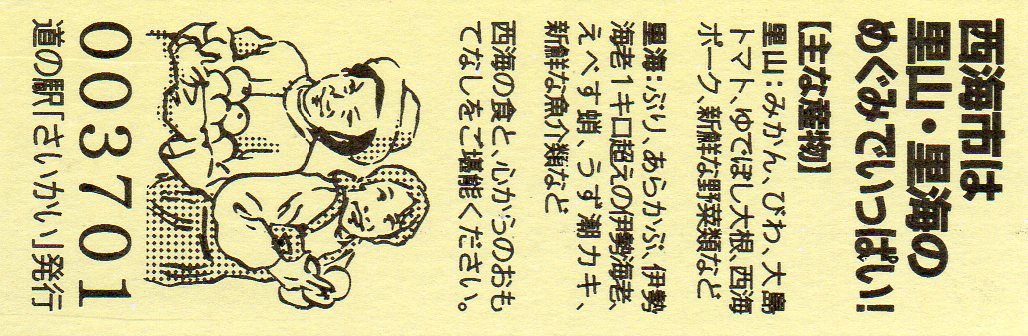 西海市は
里山・里海の
めぐみでいっぱい!
【主な産物】
里山:みかん、びわ、大島
トマト、ゆでぼし大根、西海
ポーク、新鮮な野菜類など
里海:ぶり、あらかぶ、伊勢
海老1キロ超えの伊勢海老、
えべす蛸、うず潮カキ、
新鮮な魚介類など
西海の食と、心からのおも
てなしをご堪能ください。
003701
道の駅「さいかい」発行